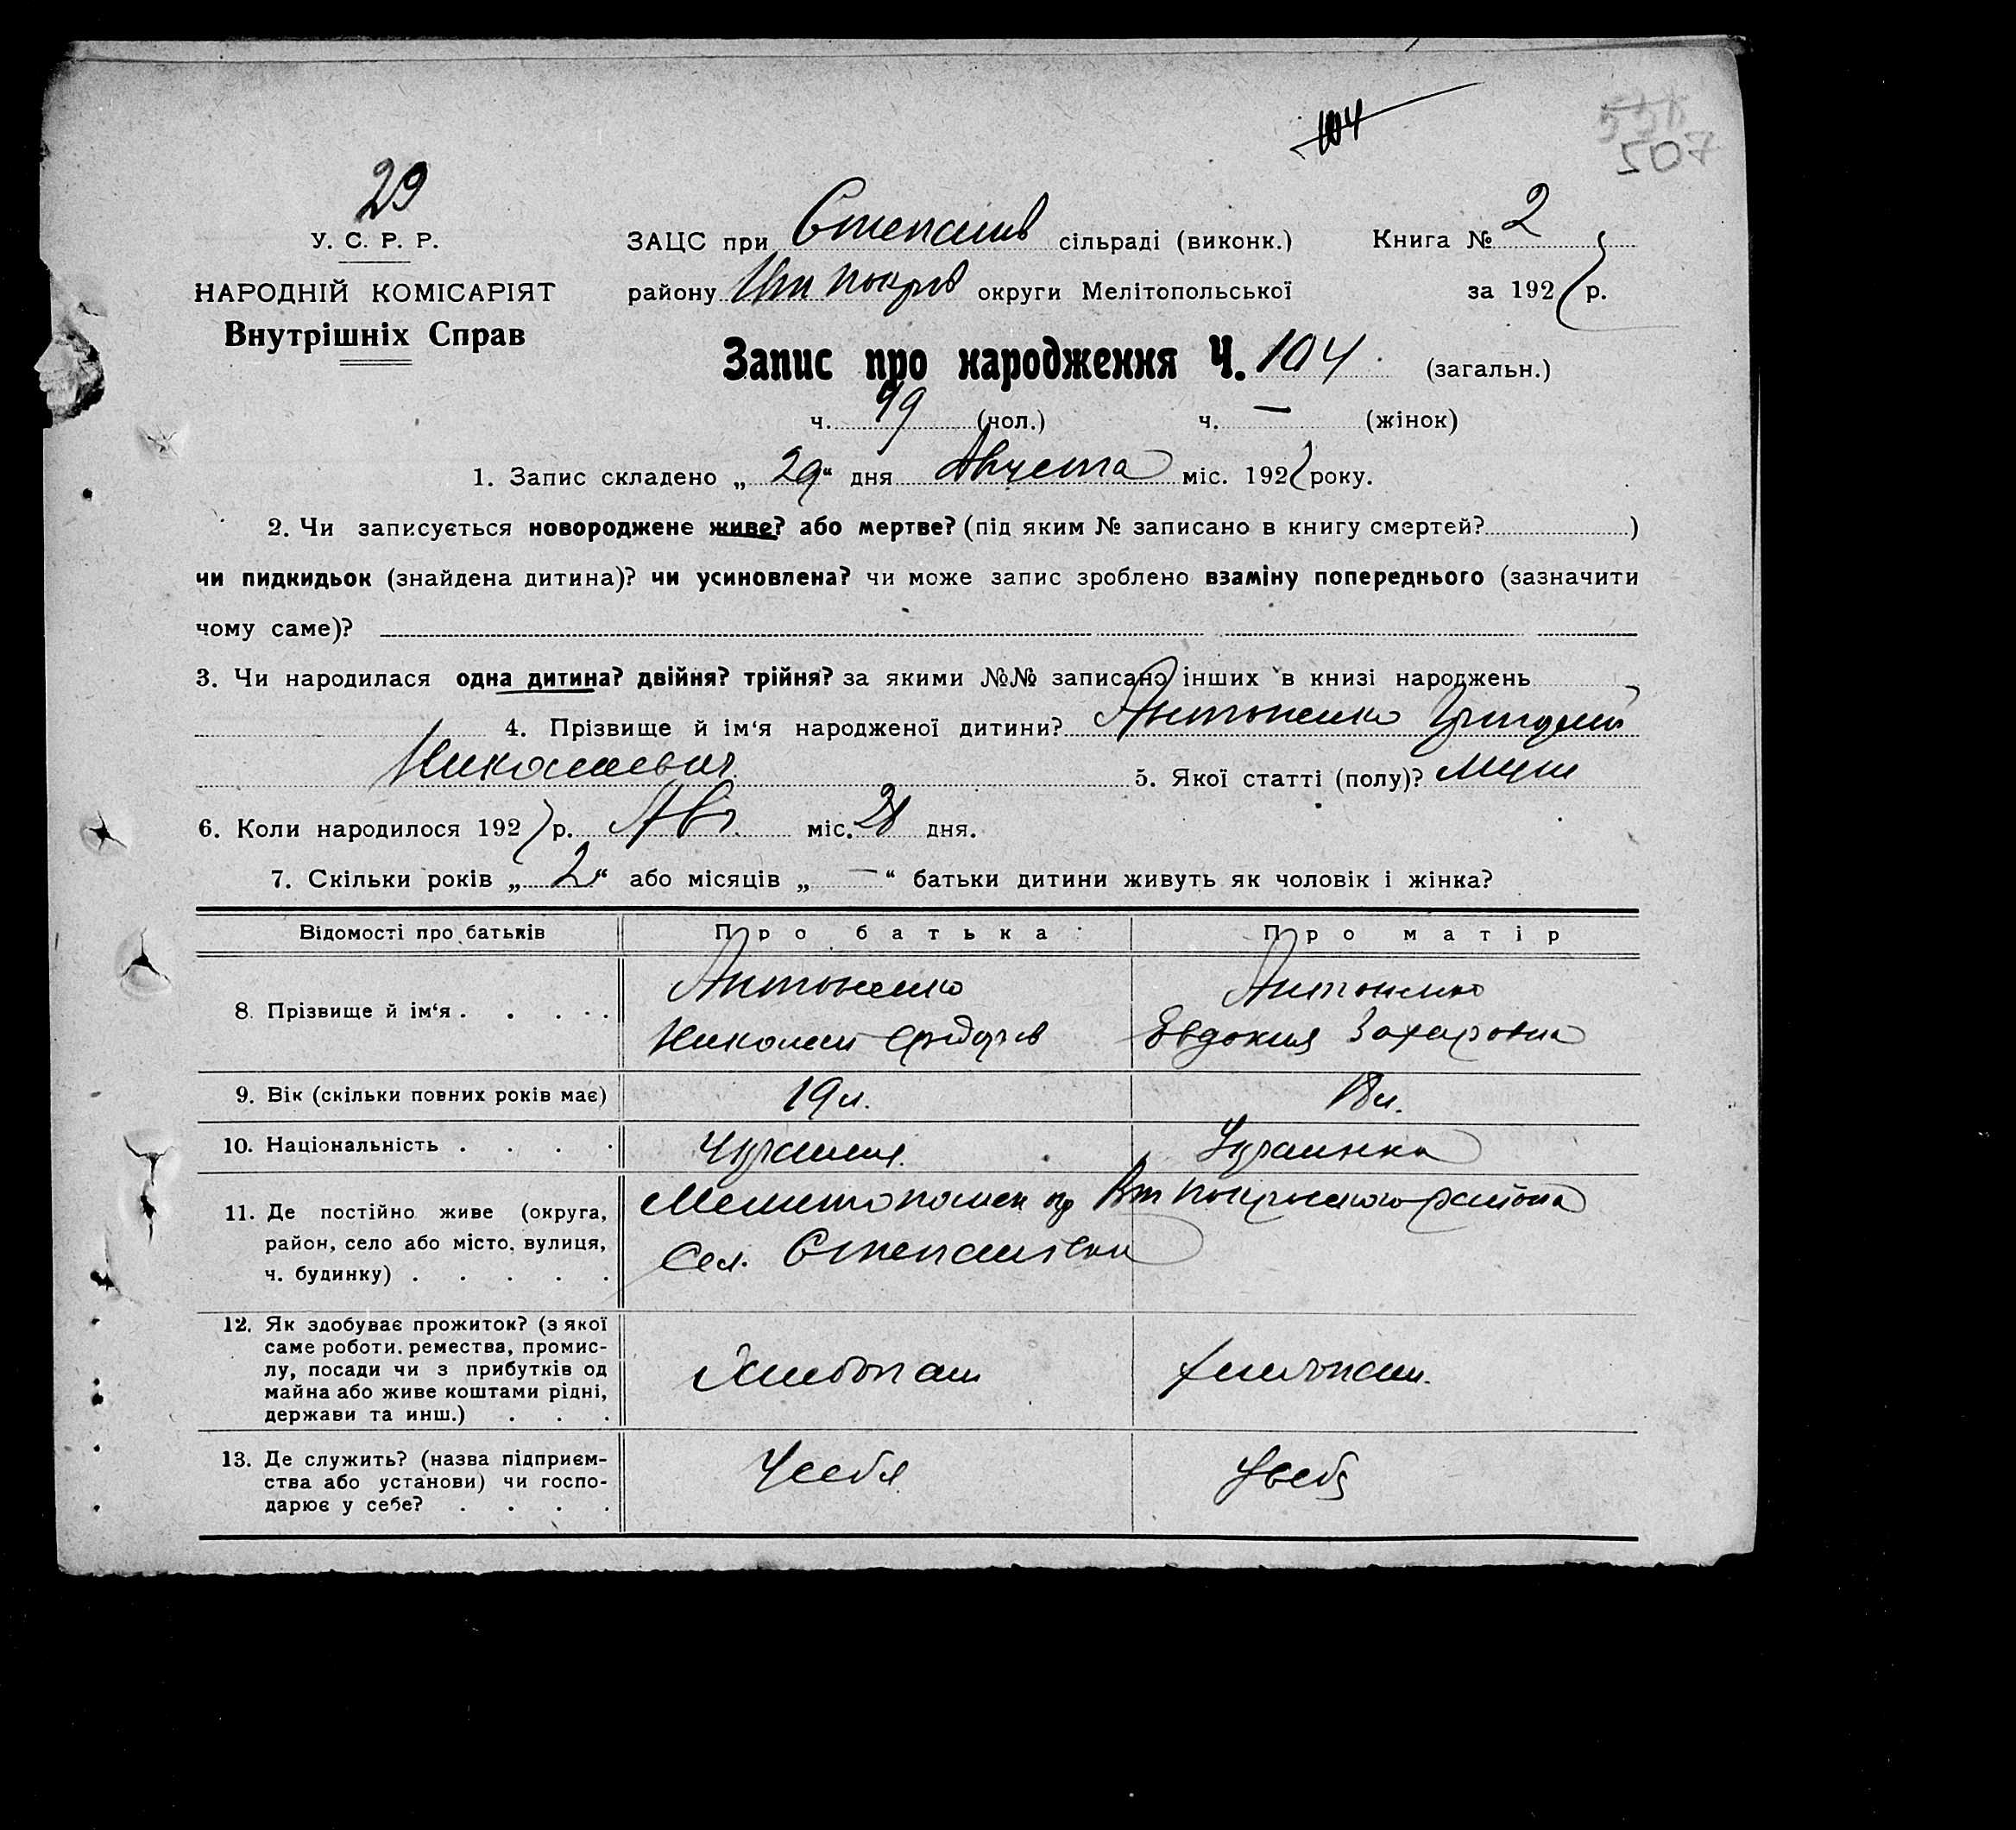 104
507
29
У. С. Р. Р.
НАРОДНІЙ КОМІСАРІЯТ
Внутрішніх Справ
ЗАЦС при Степанів сільраді (виконк.) Книга № 2
району покров округи Мелітопольської за 192 р.
Запис про народження Ч. 104 (загальн.)
ч. 49 (чол.) ч. — (жінок)
1. Запис складено „ 29 “ дня Августа міс. 192 року.
2. Чи записується новороджене живе? або мертве? (під яким № записано в книгу смертей? )
чи пидкидьок (знайдена дитина)? чи усиновлена? чи може запис зроблено взаміну попереднього (зазначити
чому саме)?
3. Чи народилася одна дитина? двійня? трійня? за якими №№ записано інших в книзі народжень
4. Прізвище й ім‘я народженої дитини? Антоненко Григорий
Николаевич 5. Якої статті (полу)? муж
6. Коли народилося 192 р. Авг. міс. 28 дня.
7. Скільки років „ 2 “ або місяців „ — “ батьки дитини живуть як чоловік і жінка?
Відомості про батьків Про батька Про матір
8. Прізвище й ім‘я . . . . . Антоненко Антоненко
Николай Евдокия Захаровна
9. Вік (скільки повних років має) 19 л. 18 л.
10. Національність . . . . Украинка
11. Де постійно живе (округа, Мелитопольск окр покровского района
район, село або місто, вулиця, Сел. Степановки
ч. будинку) . . . . .
12. Як здобуває прожиток? (з якої
саме роботи, ремества, промис-
лу, посади чи з прибутків од Хлебопаш хлебопаш.
майна або живе коштами рідні,
держави та инш.) . . .
13. Де служить? (назва підприєм- У себя У себя
ства або установи) чи госпо-
дарює у себе? . . . .